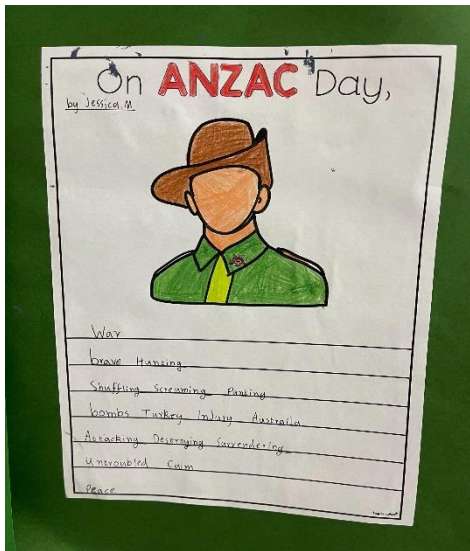 On ANZAC Day,
by Jessica.M
War
brave Hunting
Shuffling Screaming Panting
bombs Turkey Injury Australia
Attacking Destroying Surrendering
untroubled Calm
Peace